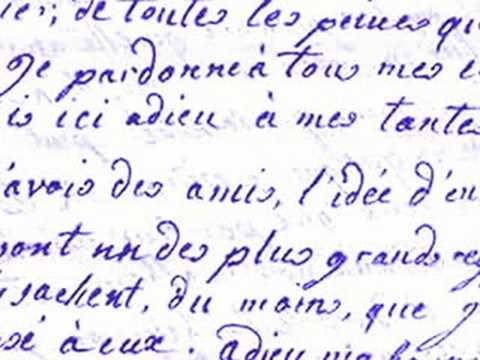 de toutes les peines qu
Je pardonne à tous mes e
is ici adieu à mes tantes
'avois des amis, l'idée d'en
sont un des plus grands re
sachent, du moins, que j
sé à eux. adieu ma